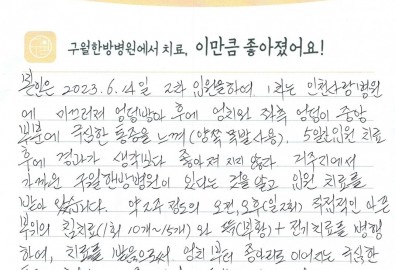 구월한방병원에서 치료, 이만큼 좋아졌어요!
본인은 2023. 6. 14일 2차 입원을하여, 1차는 인천사랑병원
에 미끄러져 엉덩방아 후에 엉치와 좌측 엉덩이 중앙
부분에 극심한 통증을 느껴 (양쪽 목발 사용). 5일간입원 치료
후에 결과가 생각보다 좋아져 지지 않다 거주지에서
가까운 구월한방병원이 있다는 것을 알고 입원 치료를
받아 왔습니다. 약 2주 정도의 오전,오후(일2회) 직접적인 아픈
부위의 침치료(1회 10개~15개) 와 뜸(부항) + 전기치료를 병행
하여, 치료를 받음으로써 엉치부터 종아리로 이어지는 극심한